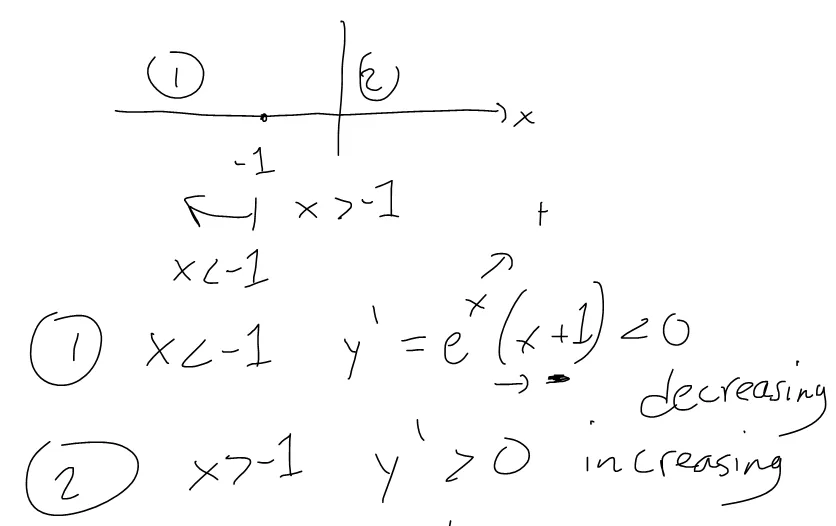 ① ②
x
-1
x > -1
x < -1
+
① x < -1 y' = eˣ(x+1) < 0
→ -
decreasing
② x > -1 y' > 0 increasing